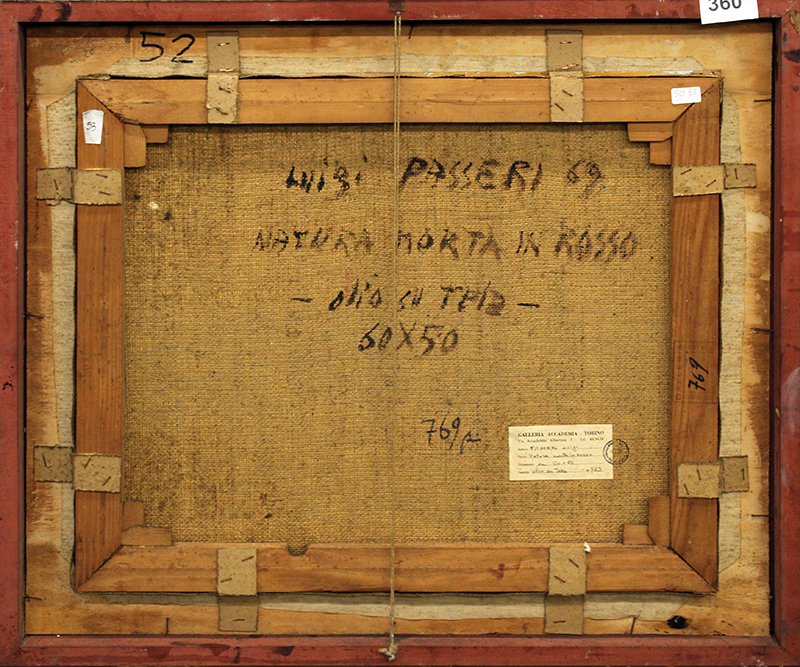 360
52
50 35
55
LUIGI PASSERI 69
NATURA MORTA IN ROSSO
- olio su Tela -
60X50
769
769
GALLERIA ACCADEMIA - TORINO
Via Accademia Albertina
Luigi
Natura morta in rosso
olio su Tela
769